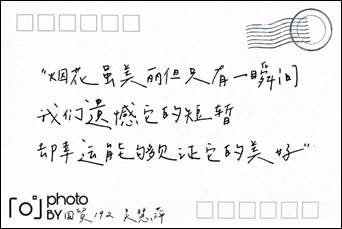 "烟花虽美丽但只有一瞬间
我们遗憾它的短暂
却幸运能够见证它的美好"
「o」photo
BY 国贸192 吴慧萍